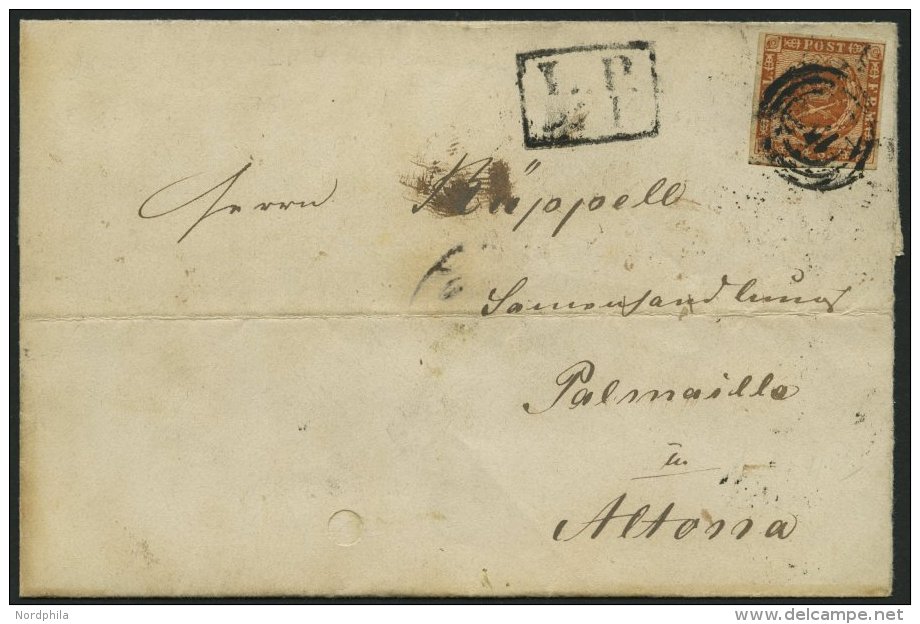 L. P.
POST
Herrn Rüppell
Samenhandlung
Palmaille
in
Altona
Nordphila
delcampe.net